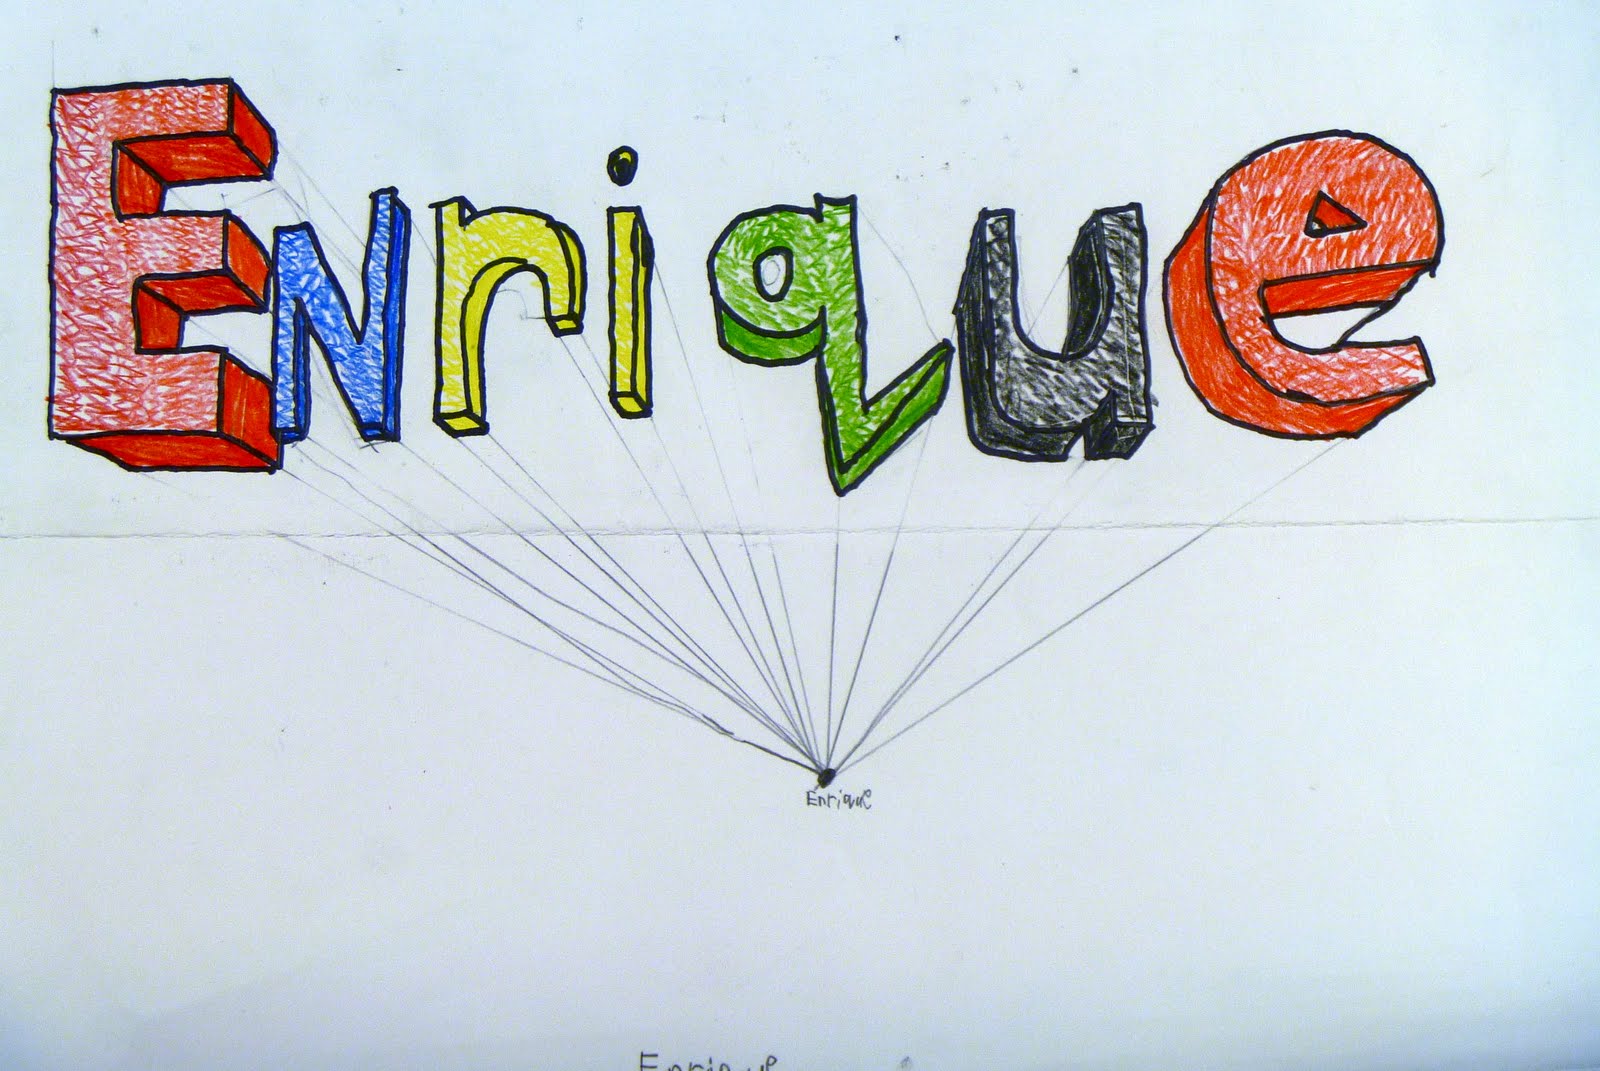 Enrique
Enrique
Enrique